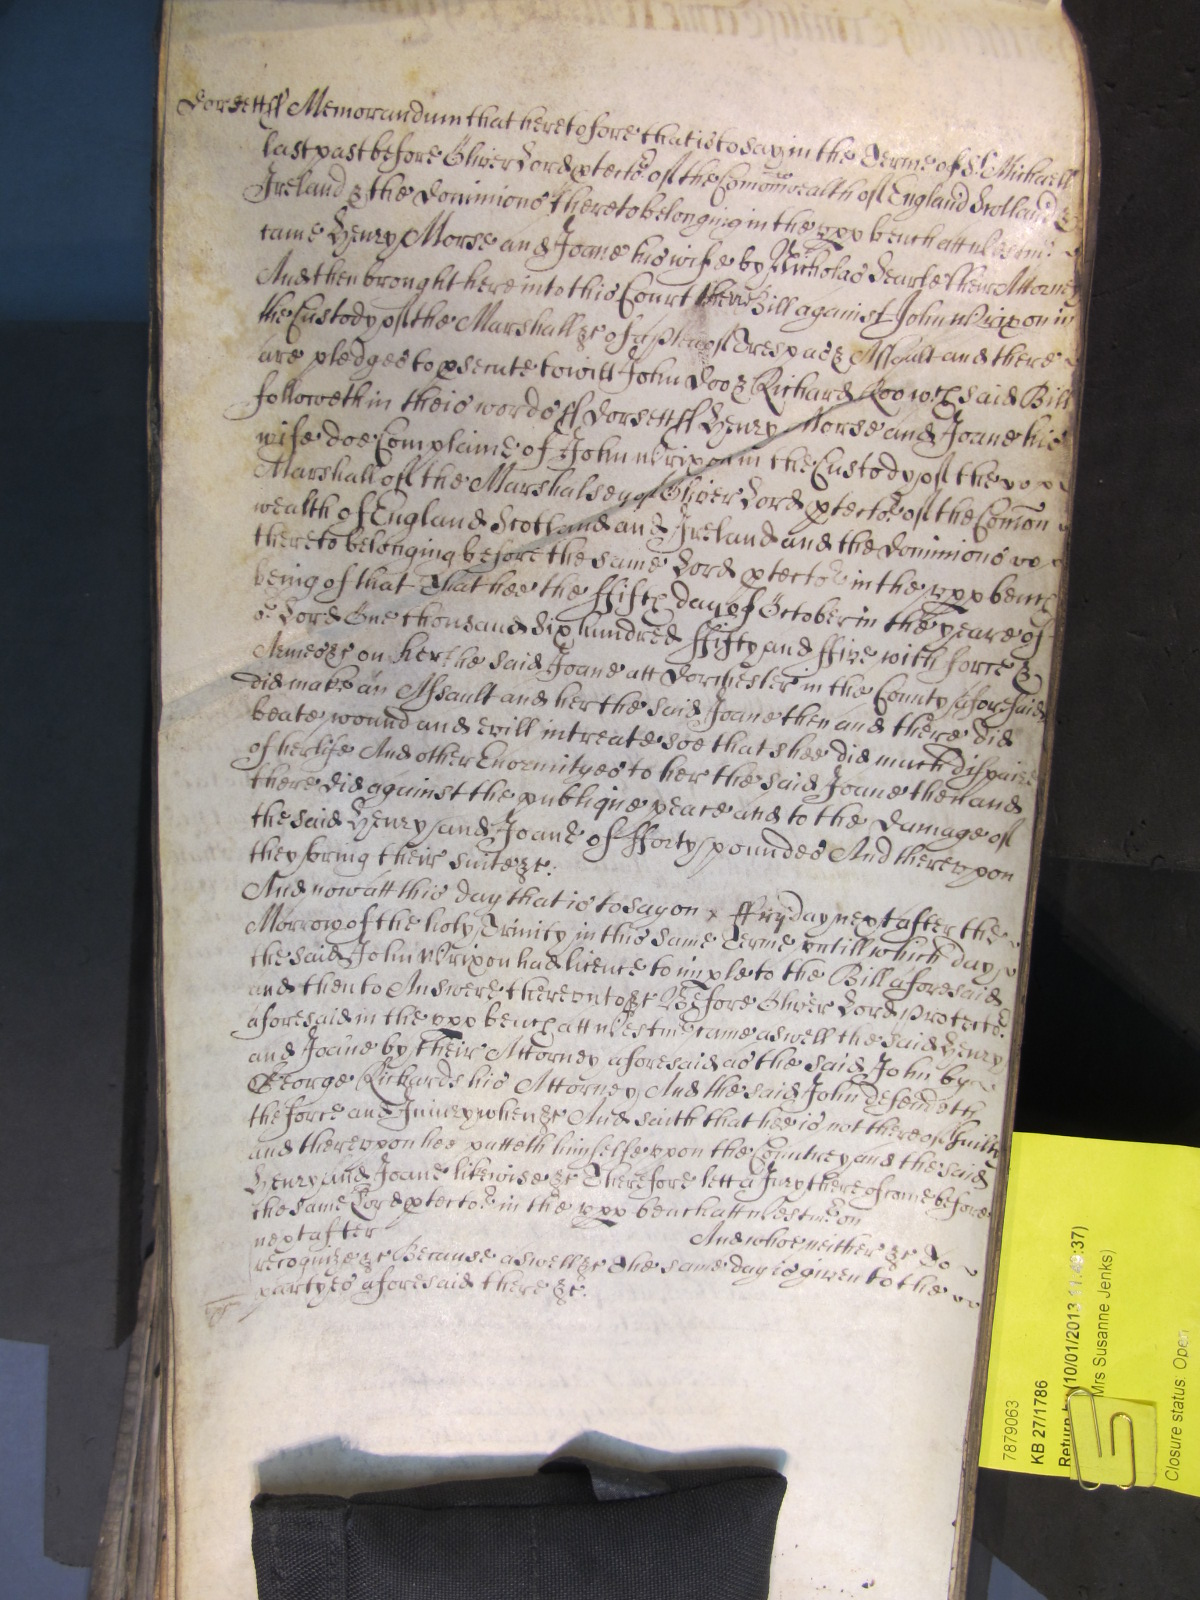 Dorsett ss Memorandum that heretofore that is to say in the Terme of St. Michaell
last past before Oliver Lord ptector of the Comonwealth of England Scotland &
Ireland & the Dominions thereto belonging in the upp bench att Westmr.
came Henry Morse and Joane his wife by Nicholas Searle their Attorney
And then brought here into this Court their Bill against John Wrixon in
the Custody of the Marshall &c of a plea of Trespas & Assault and there
are pledges to psecute to witt John Doo & Richard Roo wch said Bill
followeth in theis words ss Dorsett ss Henry Morse and Joane his
wife doe Complaine of John Wrixon in the Custody of the
Marshall of the Marshalsey of Oliver Lord ptector of the Comon
wealth of England Scotland and Ireland and the Dominions
thereto belonging before the same Lord ptector in the upp bench
being of that That hee the ffifth day of October in the yeare of
or Lord One thousand Six hundred ffifty and ffive with force &
Armes &c on her the said Joane att Dorchester in the County aforesaid
did make an Assault and her the said Joane then and there did
beate wound and evill intreate soe that shee did much dispaire
of her life And other Enormityes to her the said Joane then and
there did against the publique peace and to the damage of
the said Henry and Joane of fforty poundes And thereupon
they bring their suite &c.
And now att this day that is to say on ffryday next after the
Morrow of the holy Trinity in this same Terme untill which day
the said John Wrixon had licence to imple to the Bill aforesaid
and then to Answere thereunto &c Before Oliver Lord Protector
aforesaid in the upp bench att Westmr came aswell the said Henry
and Joane by their Attorney aforesaid as the said John by
George Rickards his Attorney And the said John defendeth
the force and Iniury when &c And saith that hee is not thereof guilty
and thereupon hee putteth himselfe upon the Countrey and the said
Henry and Joane likewise &c Therefore lett a Jury thereof come before
the same Lord ptector in the upp bench att Westmr on
next after And whoe neither &c To
recognize &c Because aswell &c The same day is given to the
partyes aforesaid there &c.
7879063
KB 27/1786
Return by (10/01/2013 11: :37)
Mrs Susanne Jenks)
Closure status: Open